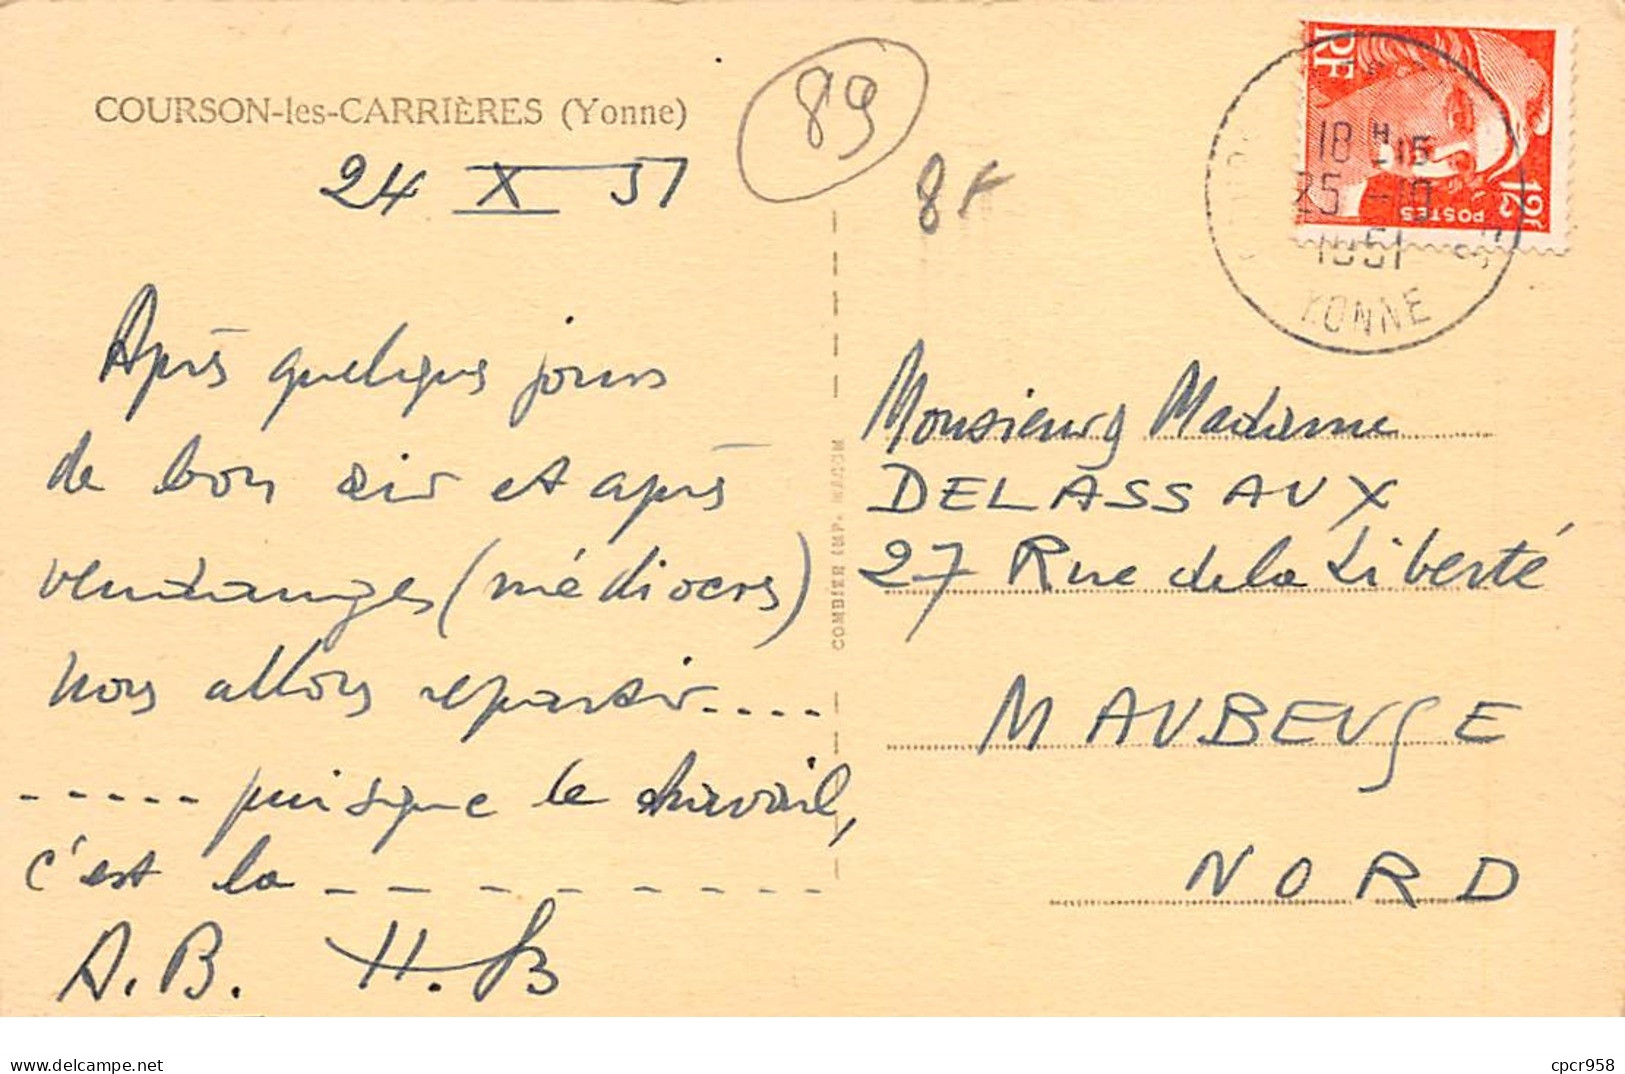 COURSON-les-CARRIÈRES (Yonne)
24 X 51
Après quelques jours
de bon air et après
vendanges (médiocres)
nous allons repartir....
----- puisque le travail,
c'est la - - - - - - - -
A.B. H.B
89
8F
COMBIER IMP. MACON
RF
POSTES
12F
18 H 15
25 -10
1951
YONNE
Monsieur Madame
DELASSAUX
27 Rue de la Liberté
MAUBEUGE
NORD
delcampe.net
cpcr958